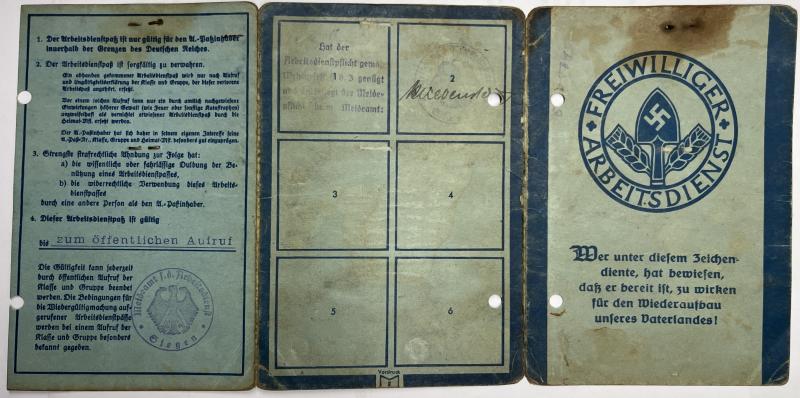 1. Der Arbeitsdienstpaß ist nur gültig für den A.-Paßinhaber
innerhalb der Grenzen des Deutschen Reiches.
2. Der Arbeitsdienstpaß ist sorgfältig zu verwahren.
Ein abhanden gekommener Arbeitsdienstpaß wird nur nach Aufruf
und Ungültigkeitserklärung der Klasse und Gruppe, der dieser verlorene
Arbeitspaß angehört, ersetzt.
Vor einem solchen Aufruf kann nur ein durch amtlich nachgewiesene
Einwirkungen höherer Gewalt (wie Feuer oder sonstige Katastrophen)
als vernichtet erwiesener Arbeitsdienstpaß durch die
Heimat-Mst. ersetzt werden.
Der A.-Paßinhaber hat sich daher in seinem eigenen Interesse seine
A.-Paß-Nr., Klasse, Gruppe und Heimat-Mst. besonders gut einzuprägen.
3. Strengste strafrechtliche Ahndung zur Folge hat:
a) die wissentliche oder fahrlässige Duldung der Be-
nützung eines Arbeitsdienstpasses,
b) die widerrechtliche Verwendung dieses Arbeits-
dienstpasses
durch eine andere Person als den A.-Paßinhaber.
4. Dieser Arbeitsdienstpaß ist gültig
bis zum öffentlichen Aufruf
Die Gültigkeit kann jederzeit
durch öffentlichen Aufruf der
Klasse und Gruppe beendet
werden. Die Bedingungen für
die Wiedergültigmachung auf-
gerufener Arbeitsdienstpässe
werden bei einem Aufruf der
Klasse und Gruppe besonders
bekannt gegeben.
Meldeamt f. d. Arbeitsdienst
Siegen
Hat der
Arbeitsdienstpflicht gemäß
genügt
und der Melde-
pflicht beim Meldeamt:
2
3
4
5
6
Vordruck
M
FREIWILLIGER
ARBEITSDIENST
Wer unter diesem Zeichen
diente, hat bewiesen,
daß er bereit ist, zu wirken
für den Wiederaufbau
unseres Vaterlandes!